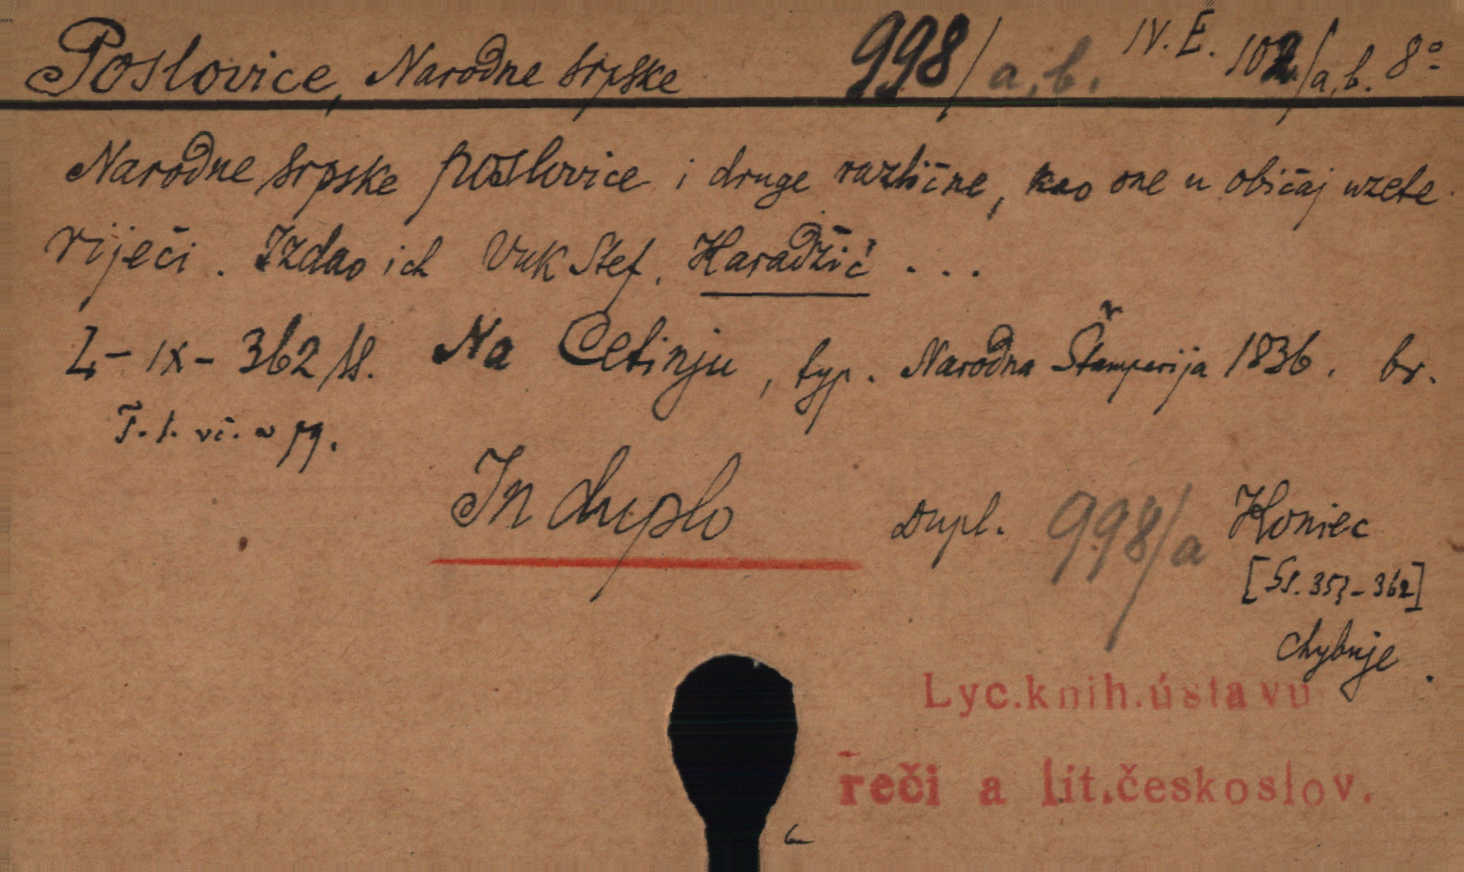 Poslovice, Narodne srpske 998/a,b. IV. E. 102/a,b. 8°
Narodne srpske poslovice i druge različne, kao one u običaj uzete
riječi. Izdao ich Vuk Stef. Karadžić ...
L-IX-362 Na Cetinju, typ. Narodna Štamparija 1836. br.
In duplo Dupl. 998/a Koniec
[Ss. 353-362]
chybuje.
Lyc.knih.ústavu
reči a lit.českoslov.